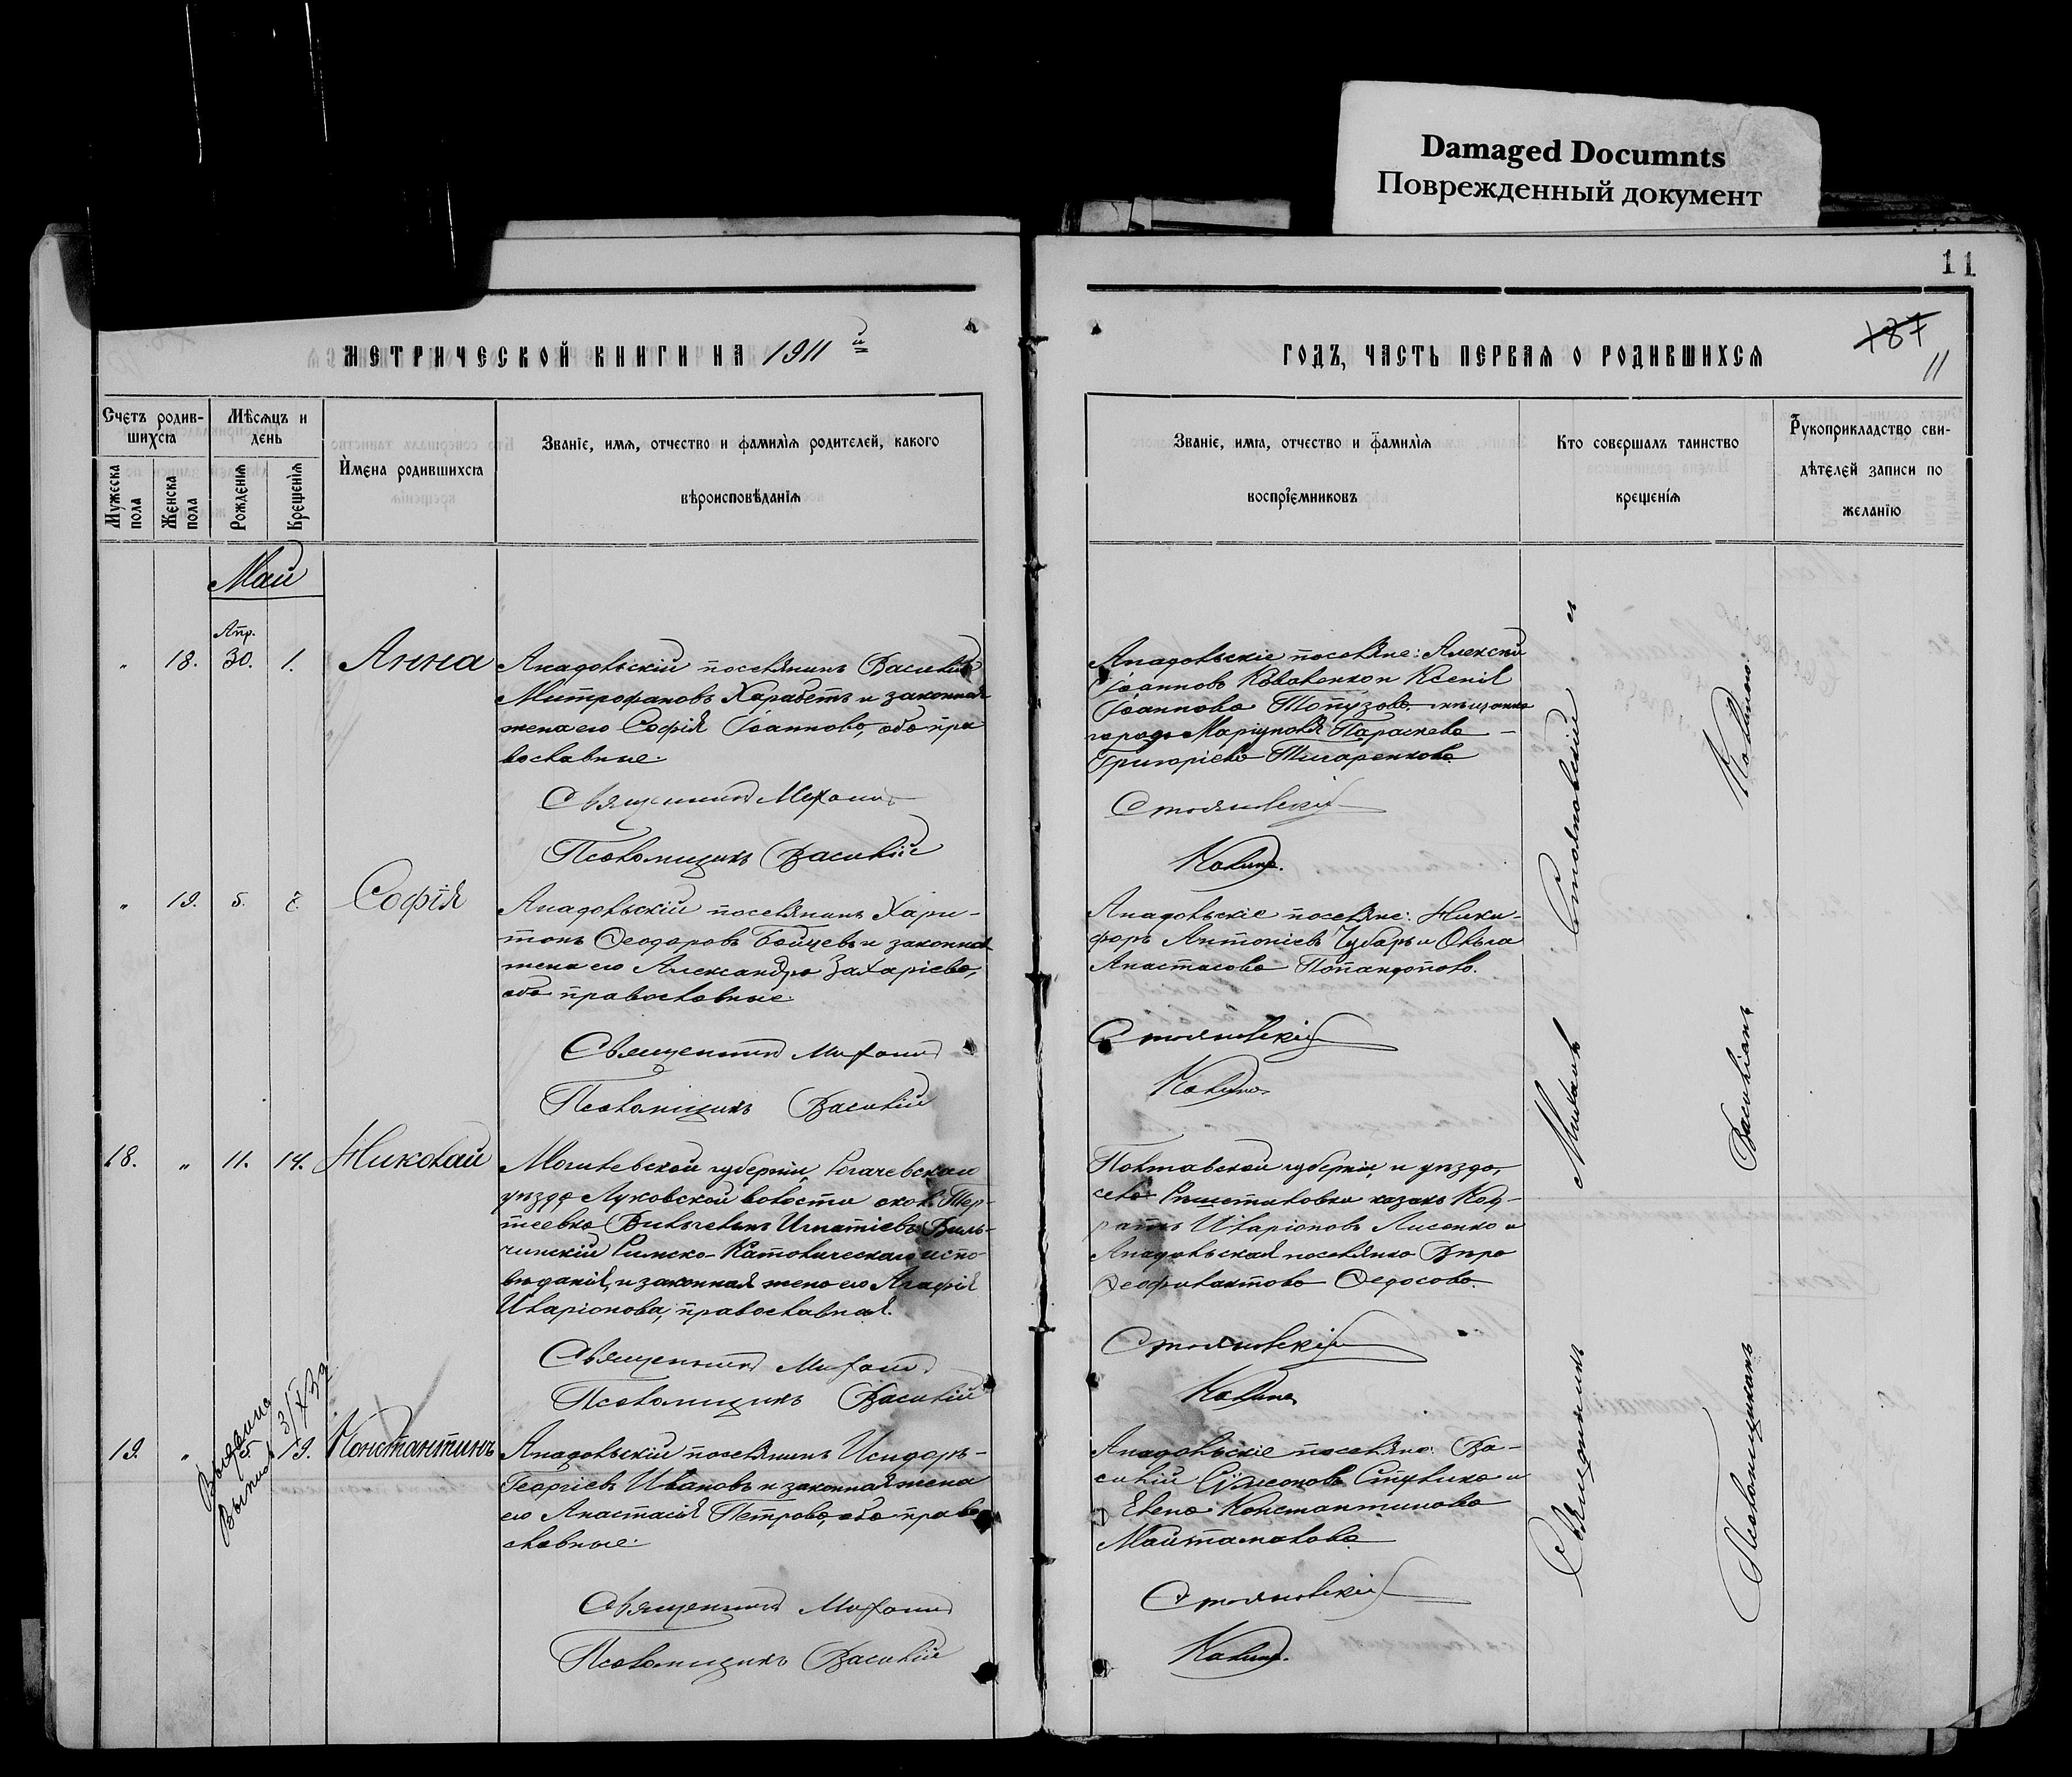 Damaged Documnts
Поврежденный документ
11
МЕТРИЧЕСКОЙ КНИГИ НА 1911 й
ГОДЪ, ЧАСТЬ ПЕРВАЯ О РОДИВШИХСЯ
187
11
Счетъ родив-
шихся
Мѣсяцъ и
день
Мужеска
пола
Женска
пола
Рожденія
Крещенія
Имена родившихся
Званіе, имя, отчество и фамилія родителей, какого
вѣроисповѣданія
Званіе, имя, отчество и фамилія
воспріемниковъ
Кто совершалъ таинство
крещенія
Рукоприкладство сви-
дѣтелей записи по
желанію
Май
Апр.
" 18. 30. 1. Анна
Анадольскій поселянинъ Василій
Митрофановъ Харабетъ и законная
жена его Софія Іоаннова, оба пра
вославные.
Священникъ Михаилъ
Псаломщикъ Василій
Анадольскіе поселяне: Алексѣй
Іоанновъ Коваленко и Ксенія
Іоаннова Топузова мѣщанка
города Маріуполя Параскева
Григоріева
Стояновскій
Калина.
" 19. 5. 7. Софія
Анадольскій поселянинъ Хари-
тонъ Ѳеодоровъ Бойцевъ и законная
жена его Александра Захаріева,
оба православные.
Священникъ Михаилъ
Псаломщикъ Василій
Анадольскіе поселяне: Ники-
форъ Антоніевъ Чубарь и Ольга
Анастасова Попандопова.
Стояновскій
Калина
18. " 11. 14. Николай
Могилевской губерніи, Рогачевскаго
уѣзда Луковской волости окол. Тер-
теевка Викентій Игнатіевъ Виль-
чинскій Римско-Католическаго испо
вѣданія, и законная жена его Агафія
Иларіонова, православная.
Священникъ Михаилъ
Псаломщикъ Василій
Полтавской губерніи и уѣзда,
села казакъ Код-
ратъ Иларіоновъ Лисенко и
Анадольская поселянка Вѣра
Ѳеофилактова Ѳедосова.
Стояновскій
Калина
19. " 15. 19. Константинъ
Выдана
3/X 39
Анадольскій поселянинъ Исидоръ
Георгіевъ Ивановъ и законная жена
его Анастасія Петрова, оба право
славные.
Священникъ Михаилъ
Псаломщикъ Василій
Анадольскіе поселяне: Ва-
силій Сѵмеоновъ Ступико и
Елена Константинова
Майтамалова
Стояновскій
Калина.
Священникъ Михаилъ Стояновскій и
Псаломщикъ Василій Калина.